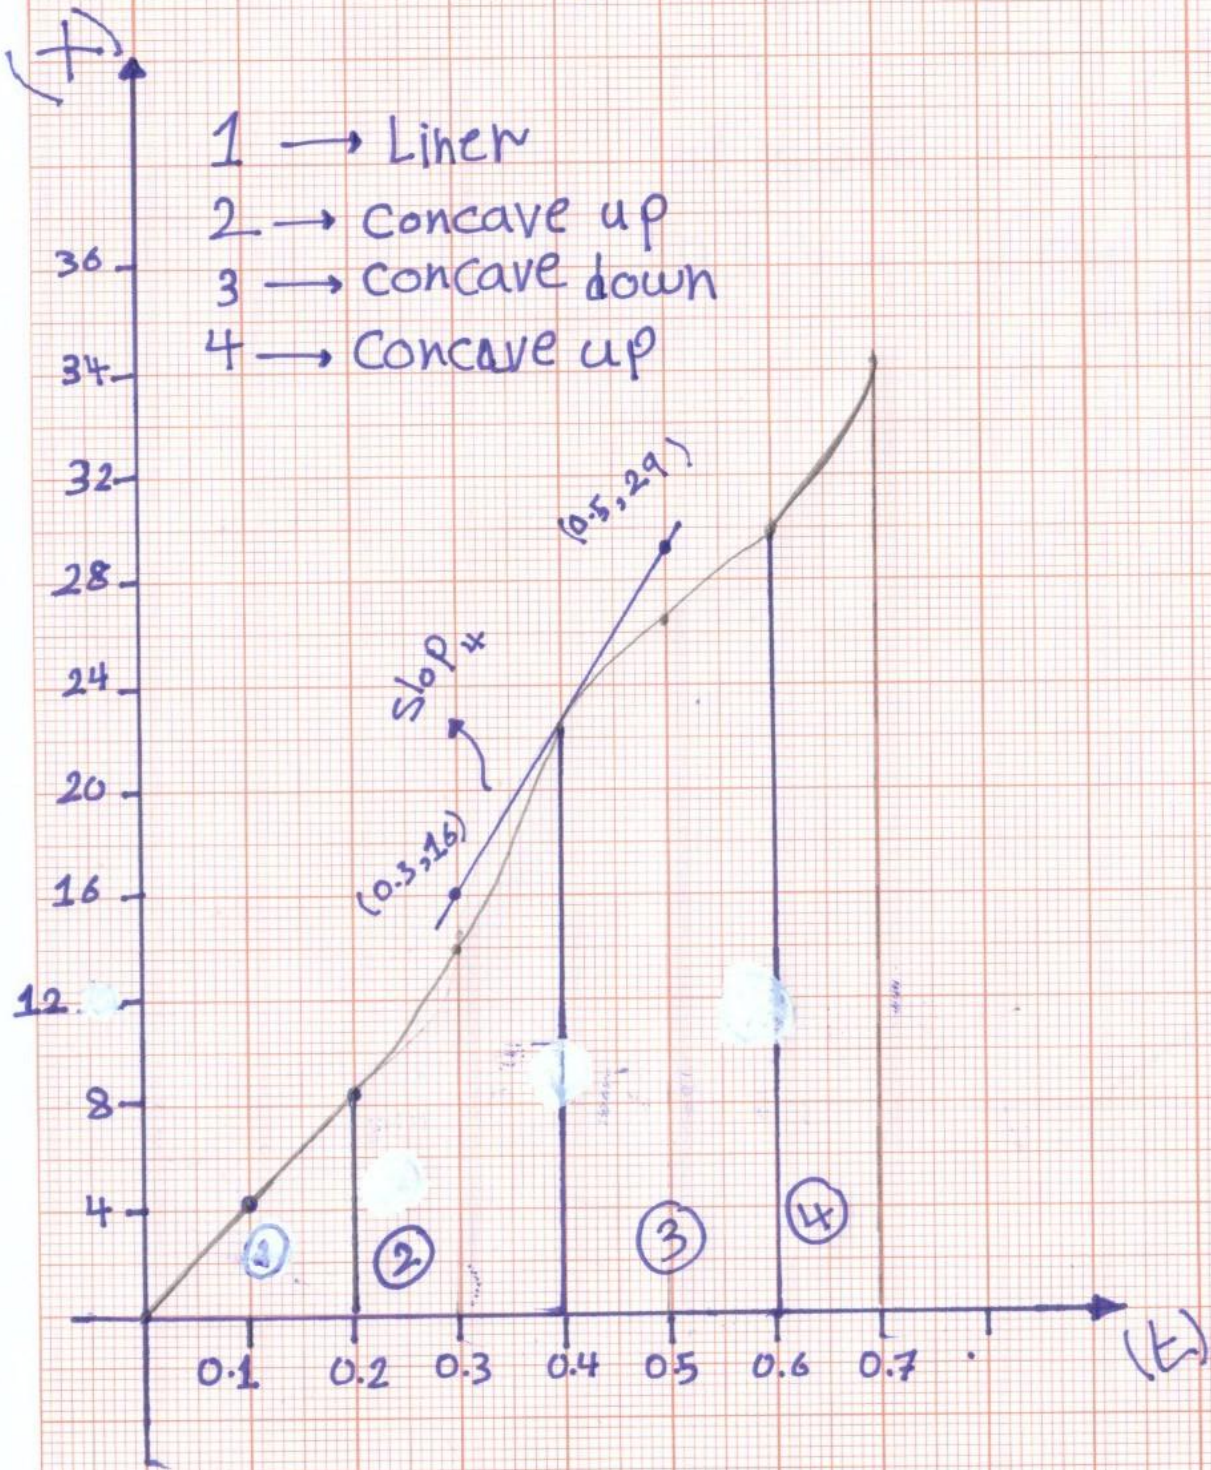 (+)
1 → Liner
2 → Concave up
3 → Concave down
4 → Concave up
36
34
32
28
24
20
16
12
8
4
(0.5, 29)
Slop 4
(0.3, 16)
1
2
3
4
0.1
0.2
0.3
0.4
0.5
0.6
0.7
(t)